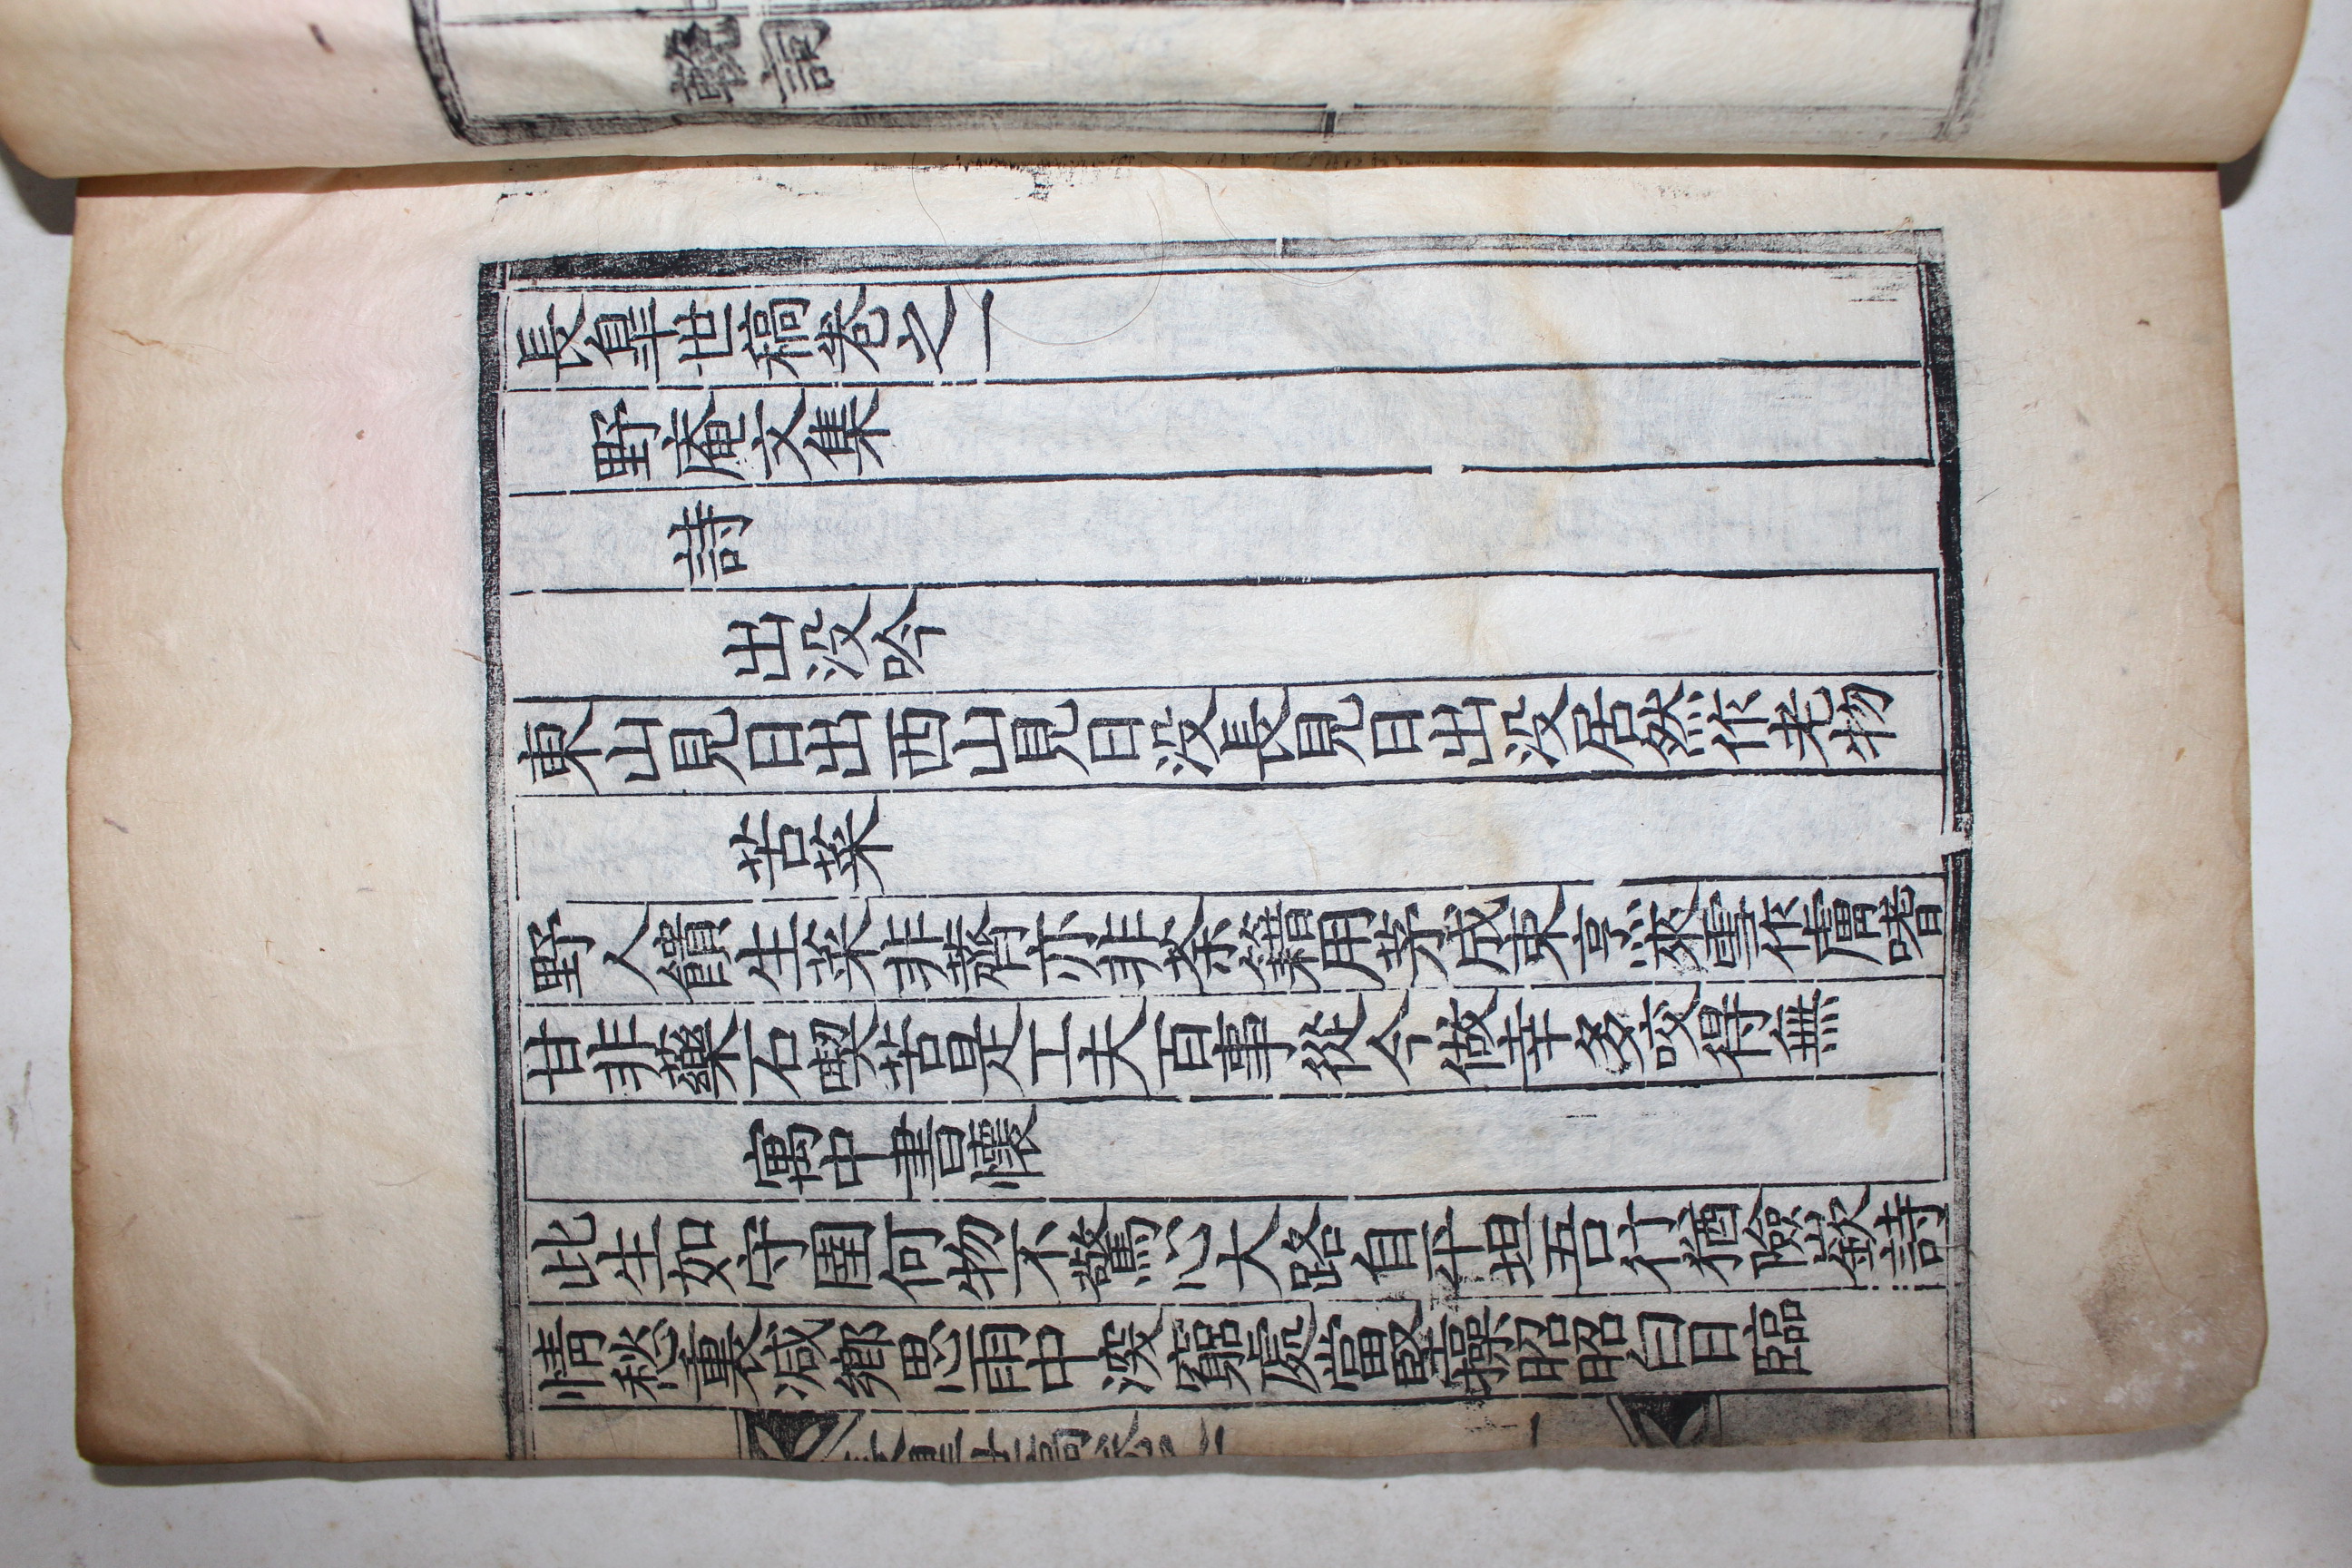 輓詞
長皐世稿卷之一
野庵文集
詩
出沒吟
東山見日出西山見日沒長見日出沒居然作老物
苦菜
野人饋生菜非薺亦非荼藉用茅成束烹來雪作膚嗜
甘非藥石喫苦是工夫百事從今做辛多咬得無
寓中書懷
此生如守圍何物不驚心大路自平坦吾行猶險嶔詩
情愁裏减鄉思雨中深窮處當堅操昭昭白日臨